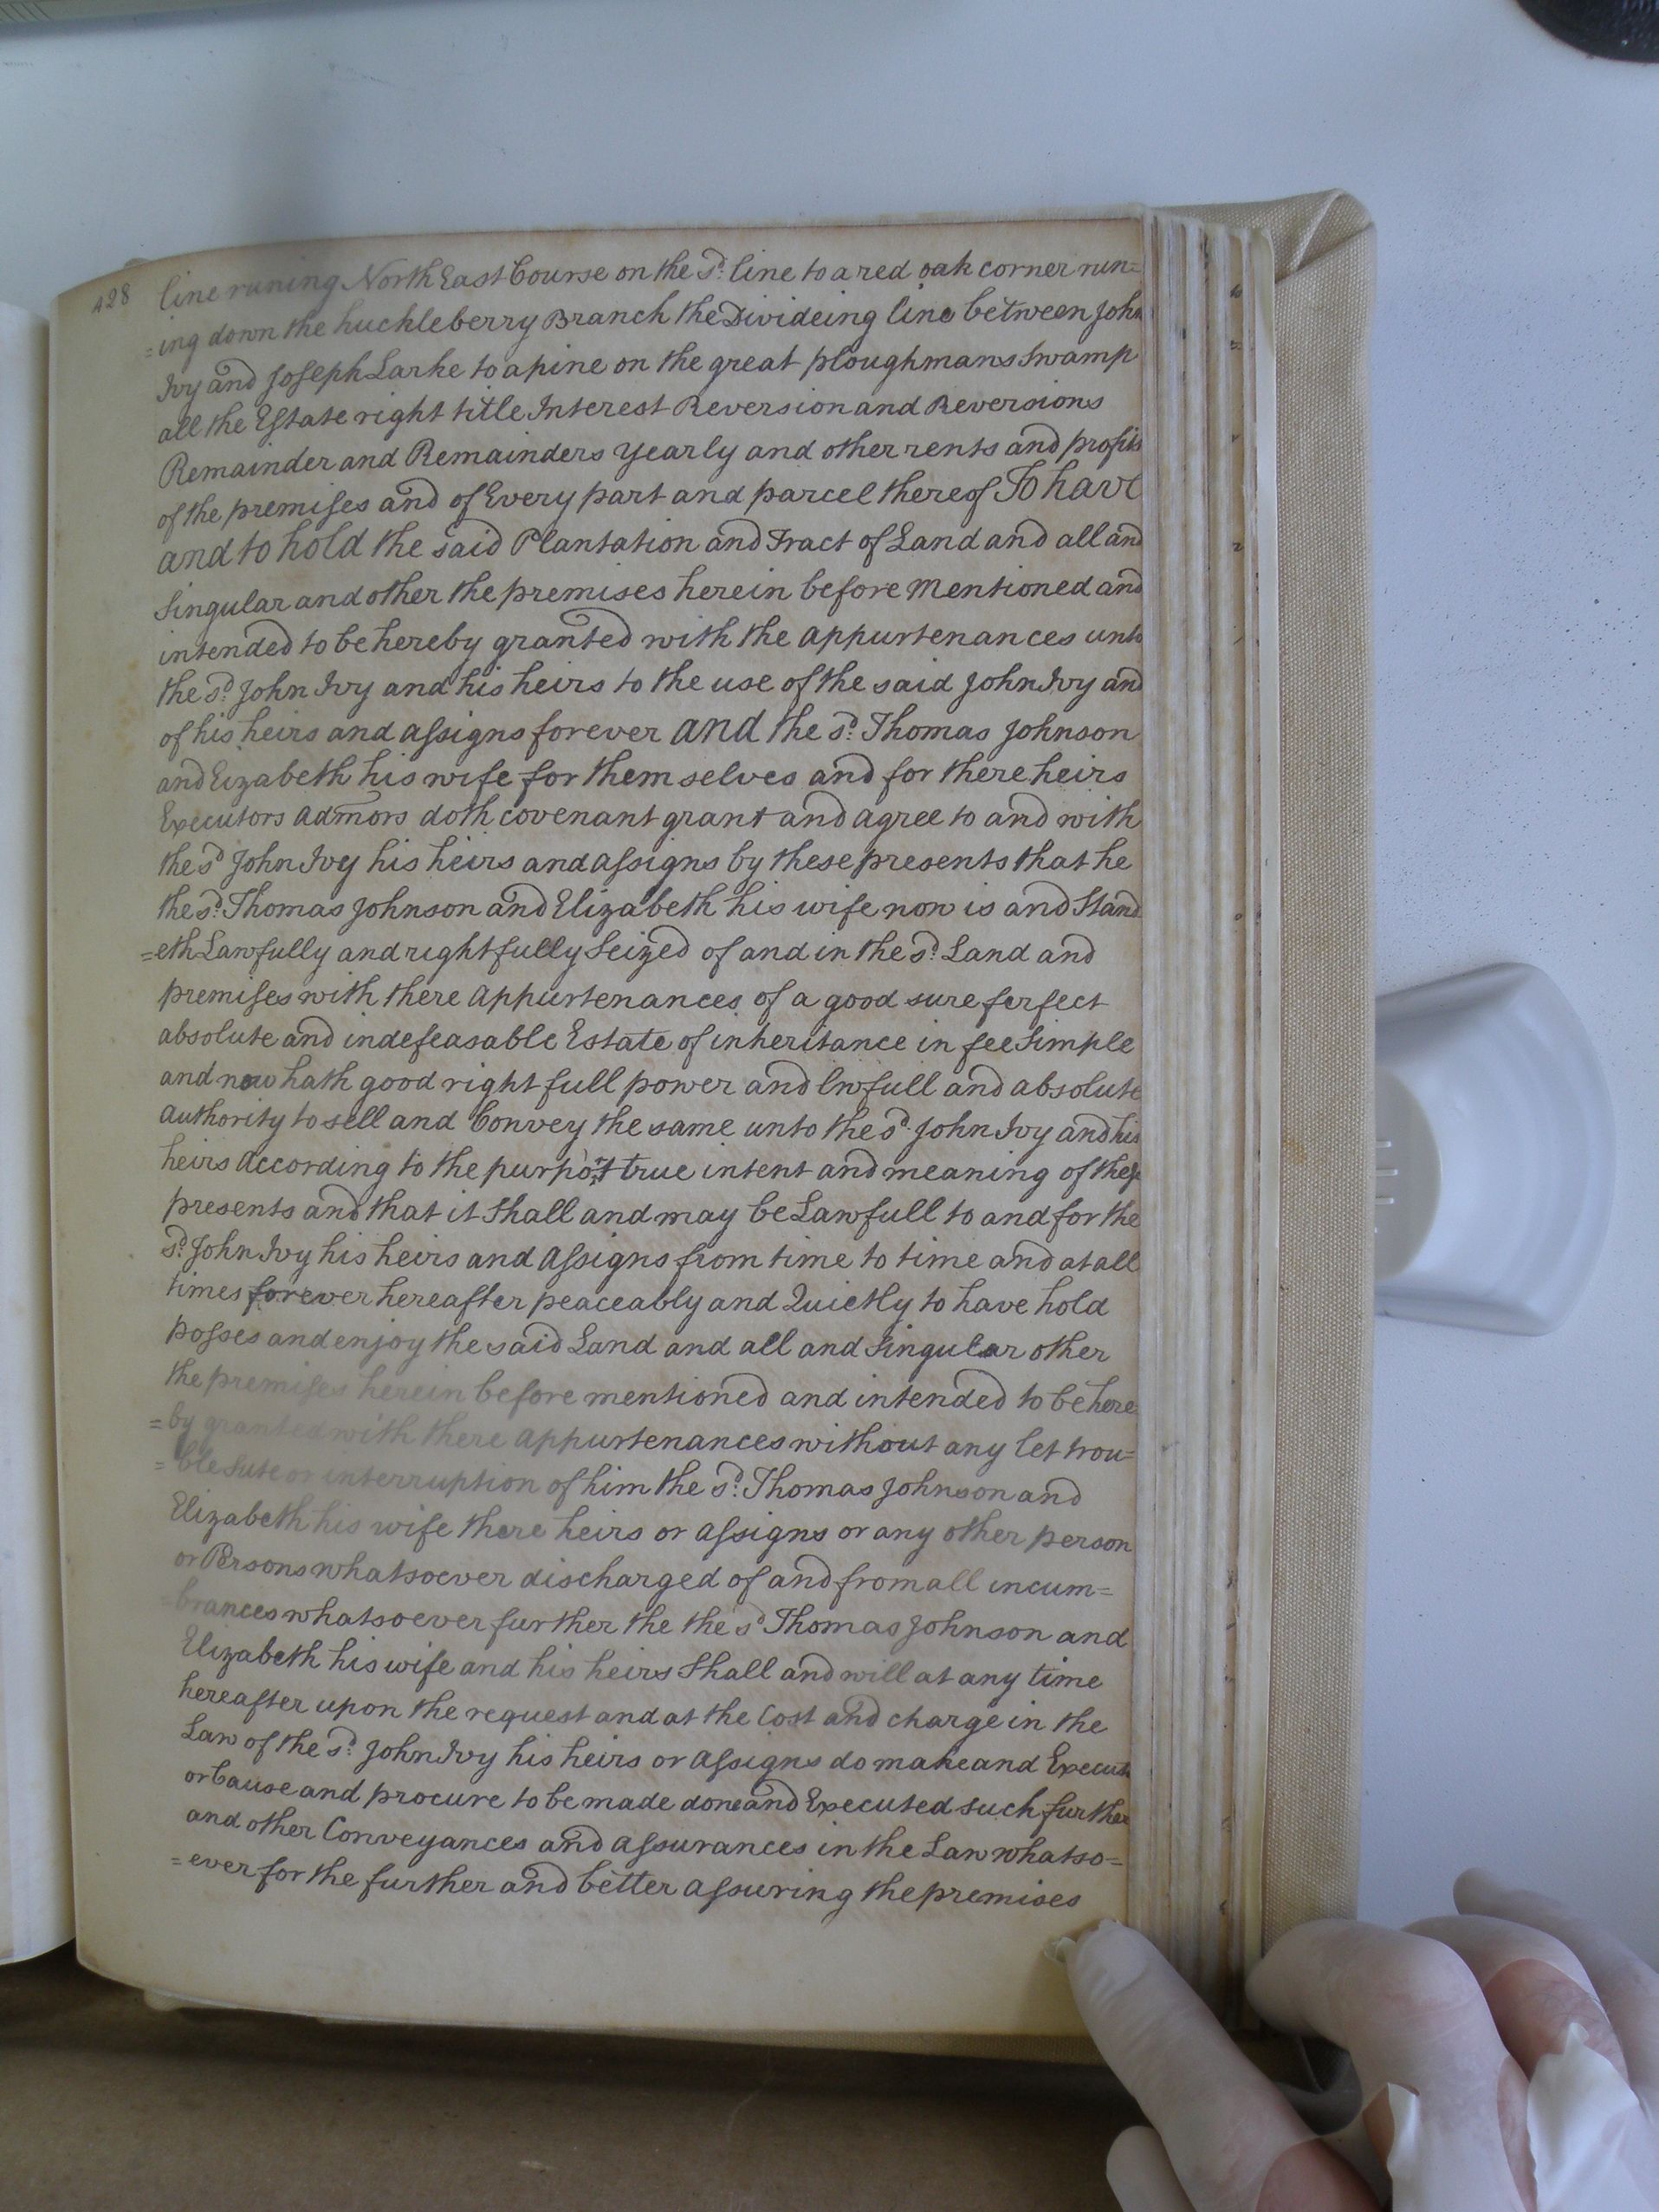 428 line runing North East Course on the sd. line to a red oak corner run=
=ing down the huckleberry Branch the Divideing line between John
Ivy and Joseph Larke to a pine on the great ploughmans Swamp
all the Estate right title Interest Reversion and Reversions
Remainder and Remainders yearly and other rents and profits
of the premises and of Every part and parcel thereof To have
and to hold the said Plantation and Tract of Land and all and
Singular and other the premises herein before mentioned and
intended to be hereby granted with the appurtenances unto
the sd. John Ivy and his heirs to the use of the said John Ivy and
of his heirs and assigns forever and the sd. Thomas Johnson
and Eizabeth his wife for them selves and for there heirs
Executors admors doth covenant grant and agree to and with
the sd John Ivy his heirs and assigns by these presents that he
the sd. Thomas Johnson and Elizabeth his wife now is and Stand
=eth Lawfully and rightfully Seized of and in the sd. Land and
premises with there appurtenances of a good sure ferfect
absolute and indefeasable Estate of inheritance in fee Simple
and now hath good right full power and lwfull and absolute
authority to sell and Convey the same unto the sd. John Ivy and his
heirs according to the purport true intent and meaning of these
presents and that it Shall and may be Lawfull to and for the
sd. John Ivy his heirs and assigns from time to time and at all
times forever hereafter peaceably and Quietly to have hold
posses and enjoy the said Land and all and Singular other
the premises herein before mentioned and intended to be here
=by granted with there appurtenances without any let trou=
=ble Sute or interruption of him the sd. Thomas Johnson and
Elizabeth his wife there heirs or assigns or any other person
or Persons whatsoever discharged of and from all incum=
=brances whatsoever further the the sd Thomas Johnson and
Elizabeth his wife and his heirs Shall and will at any time
hereafter upon the request and at the Cost and charge in the
Law of the sd. John Ivy his heirs or assigns do make and Execute
or Cause and procure to be made done and Executed such further
and other Conveyances and assurances in the Law whatso=
=ever for the further and better assuring the premises